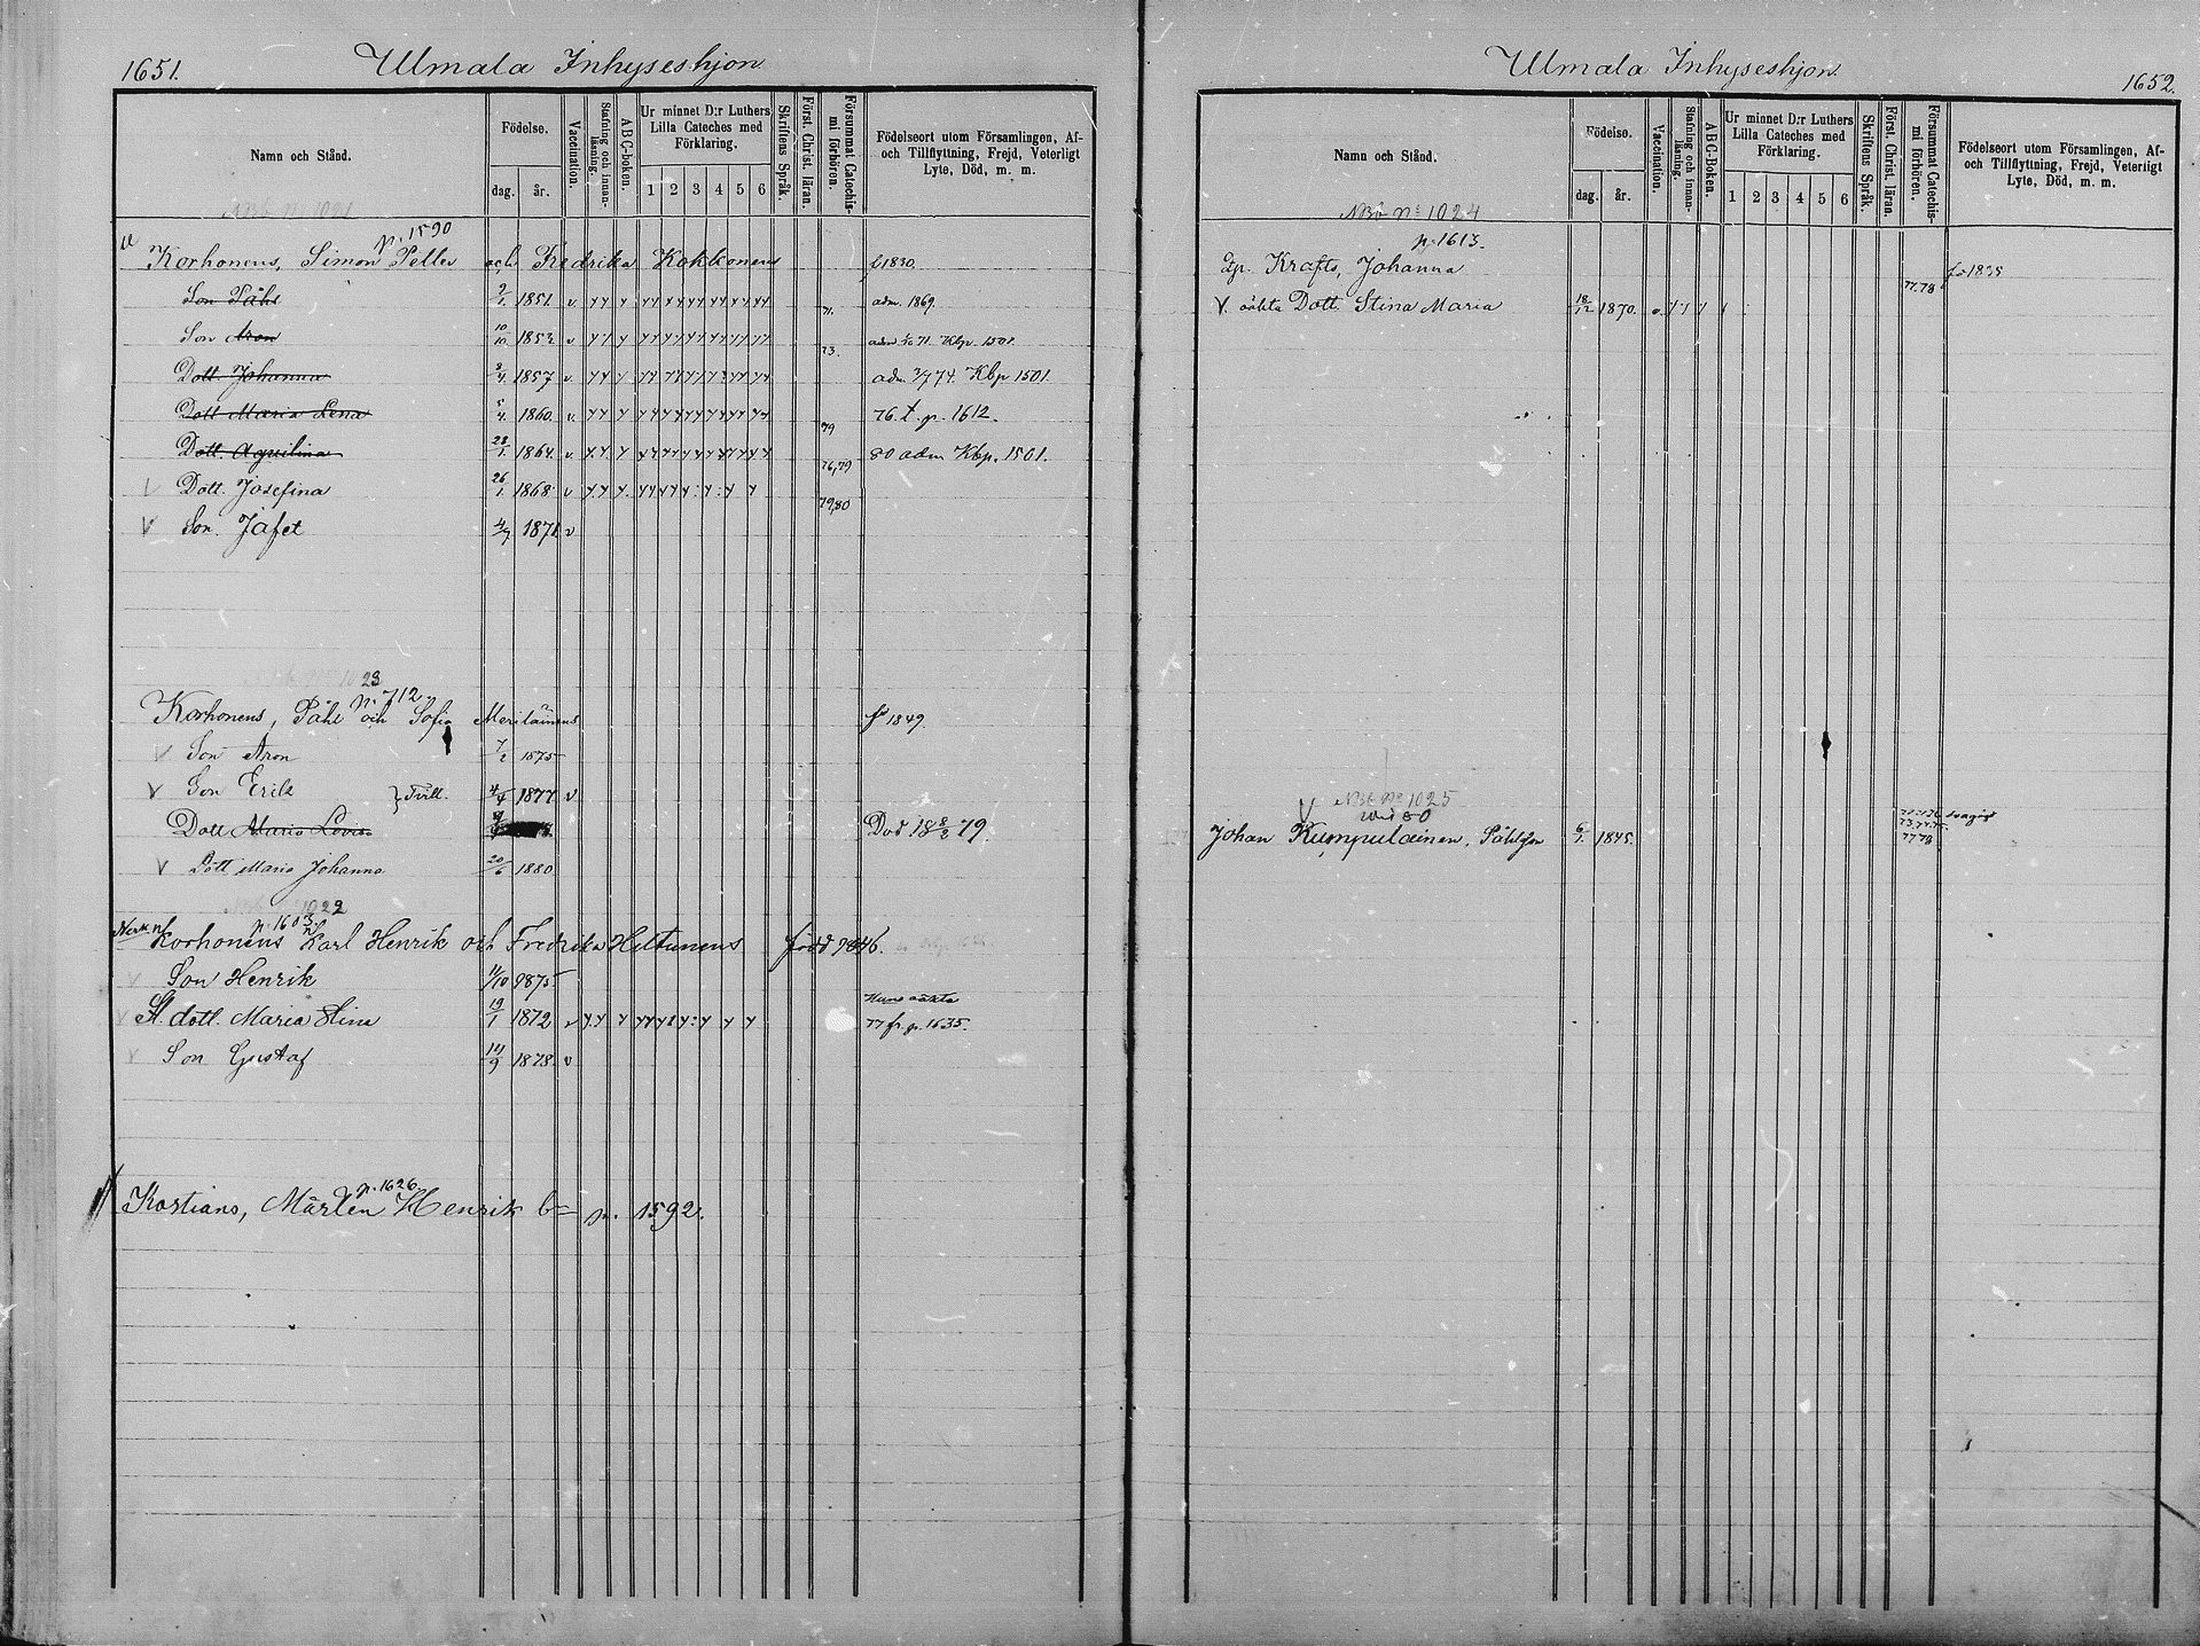 1651.
Ulmala Inhyseshjon
Namn och Stånd.
Födelse.
dag. år.
Vaccination.
Stafning och innan-läsning.
ABC-boken.
Ur minnet D:r Luthers Lilla Cateches med Förklaring.
1 2 3 4 5 6
Skriftens Språk.
Först. Christ. läran.
Försummat Catechis-mi förhören.
Födelseort utom Församlingen, Af- och Tillflyttning, Frejd, Veterligt Lyte, Död, m. m.
1021
p. 1590
Korhonens, Simon Petter och Fredrika Kokkonens f 1830.
Son Påhl 2/1. 1851. v 71. adm. 1869.
Son Aron 10/10. 1853 v 73. 71. Kbp. 1501.
Dott. Johanna 4. 1857 v. adm. 74. Kbp 1501.
Dott Maria Lena 5/4. 1860. v. 79 76. t. p. 1612.
Dott. Aquilina 28/1. 1864. v. 76,79 80 adm Kbp. 1501.
V Dott. Josefina 26/1. 1868 v 79,80
V Son. Jafet 4/7 1871 v
1023
p. 712.
Korhonens, Påhl och Sofia Meriläinens f 1849.
V Son Aron 7/2 1875
V Son Erik } Tvill. 1877 v
Dott Maria Lovisa Död 18 8/2 79.
V Dott Maria Johanna 20/6 1880
1022
p. 1603.
Korhonens Karl Henrik och Fredrika Heltunens född 1846.
V Son Henrik 11/10 1875
V St. dott. Maria Stina 19/1 1872 v Hans oäkta 77 fr. p. 1635.
V Son Gustaf 14/9 1878. v
p. 1626.
Kostians, Mårten Henrik b= p. 1592.
Ulmala Inhyseshjon.
1652.
Namn och Stånd.
Födelse.
dag. år.
Vaccination.
Stafning och innan-läsning.
ABC-Boken.
Ur minnet D:r Luthers Lilla Cateches med Förklaring.
1 2 3 4 5 6
Skriftens Språk.
Först. Christ. läran.
Försummat Catechis-mi förhören.
Födelseort utom Församlingen, Af- och Tillflyttning, Frejd, Veterligt Lyte, Död, m. m.
Nº 1024
p. 1613.
Krafts, Johanna 77.78 1835
V. oäkta Dott. Stina Maria 18/12 1870.
Nº 1025
80
Johan Kumpulainen, Påhlson 6/1. 1845. 77 78